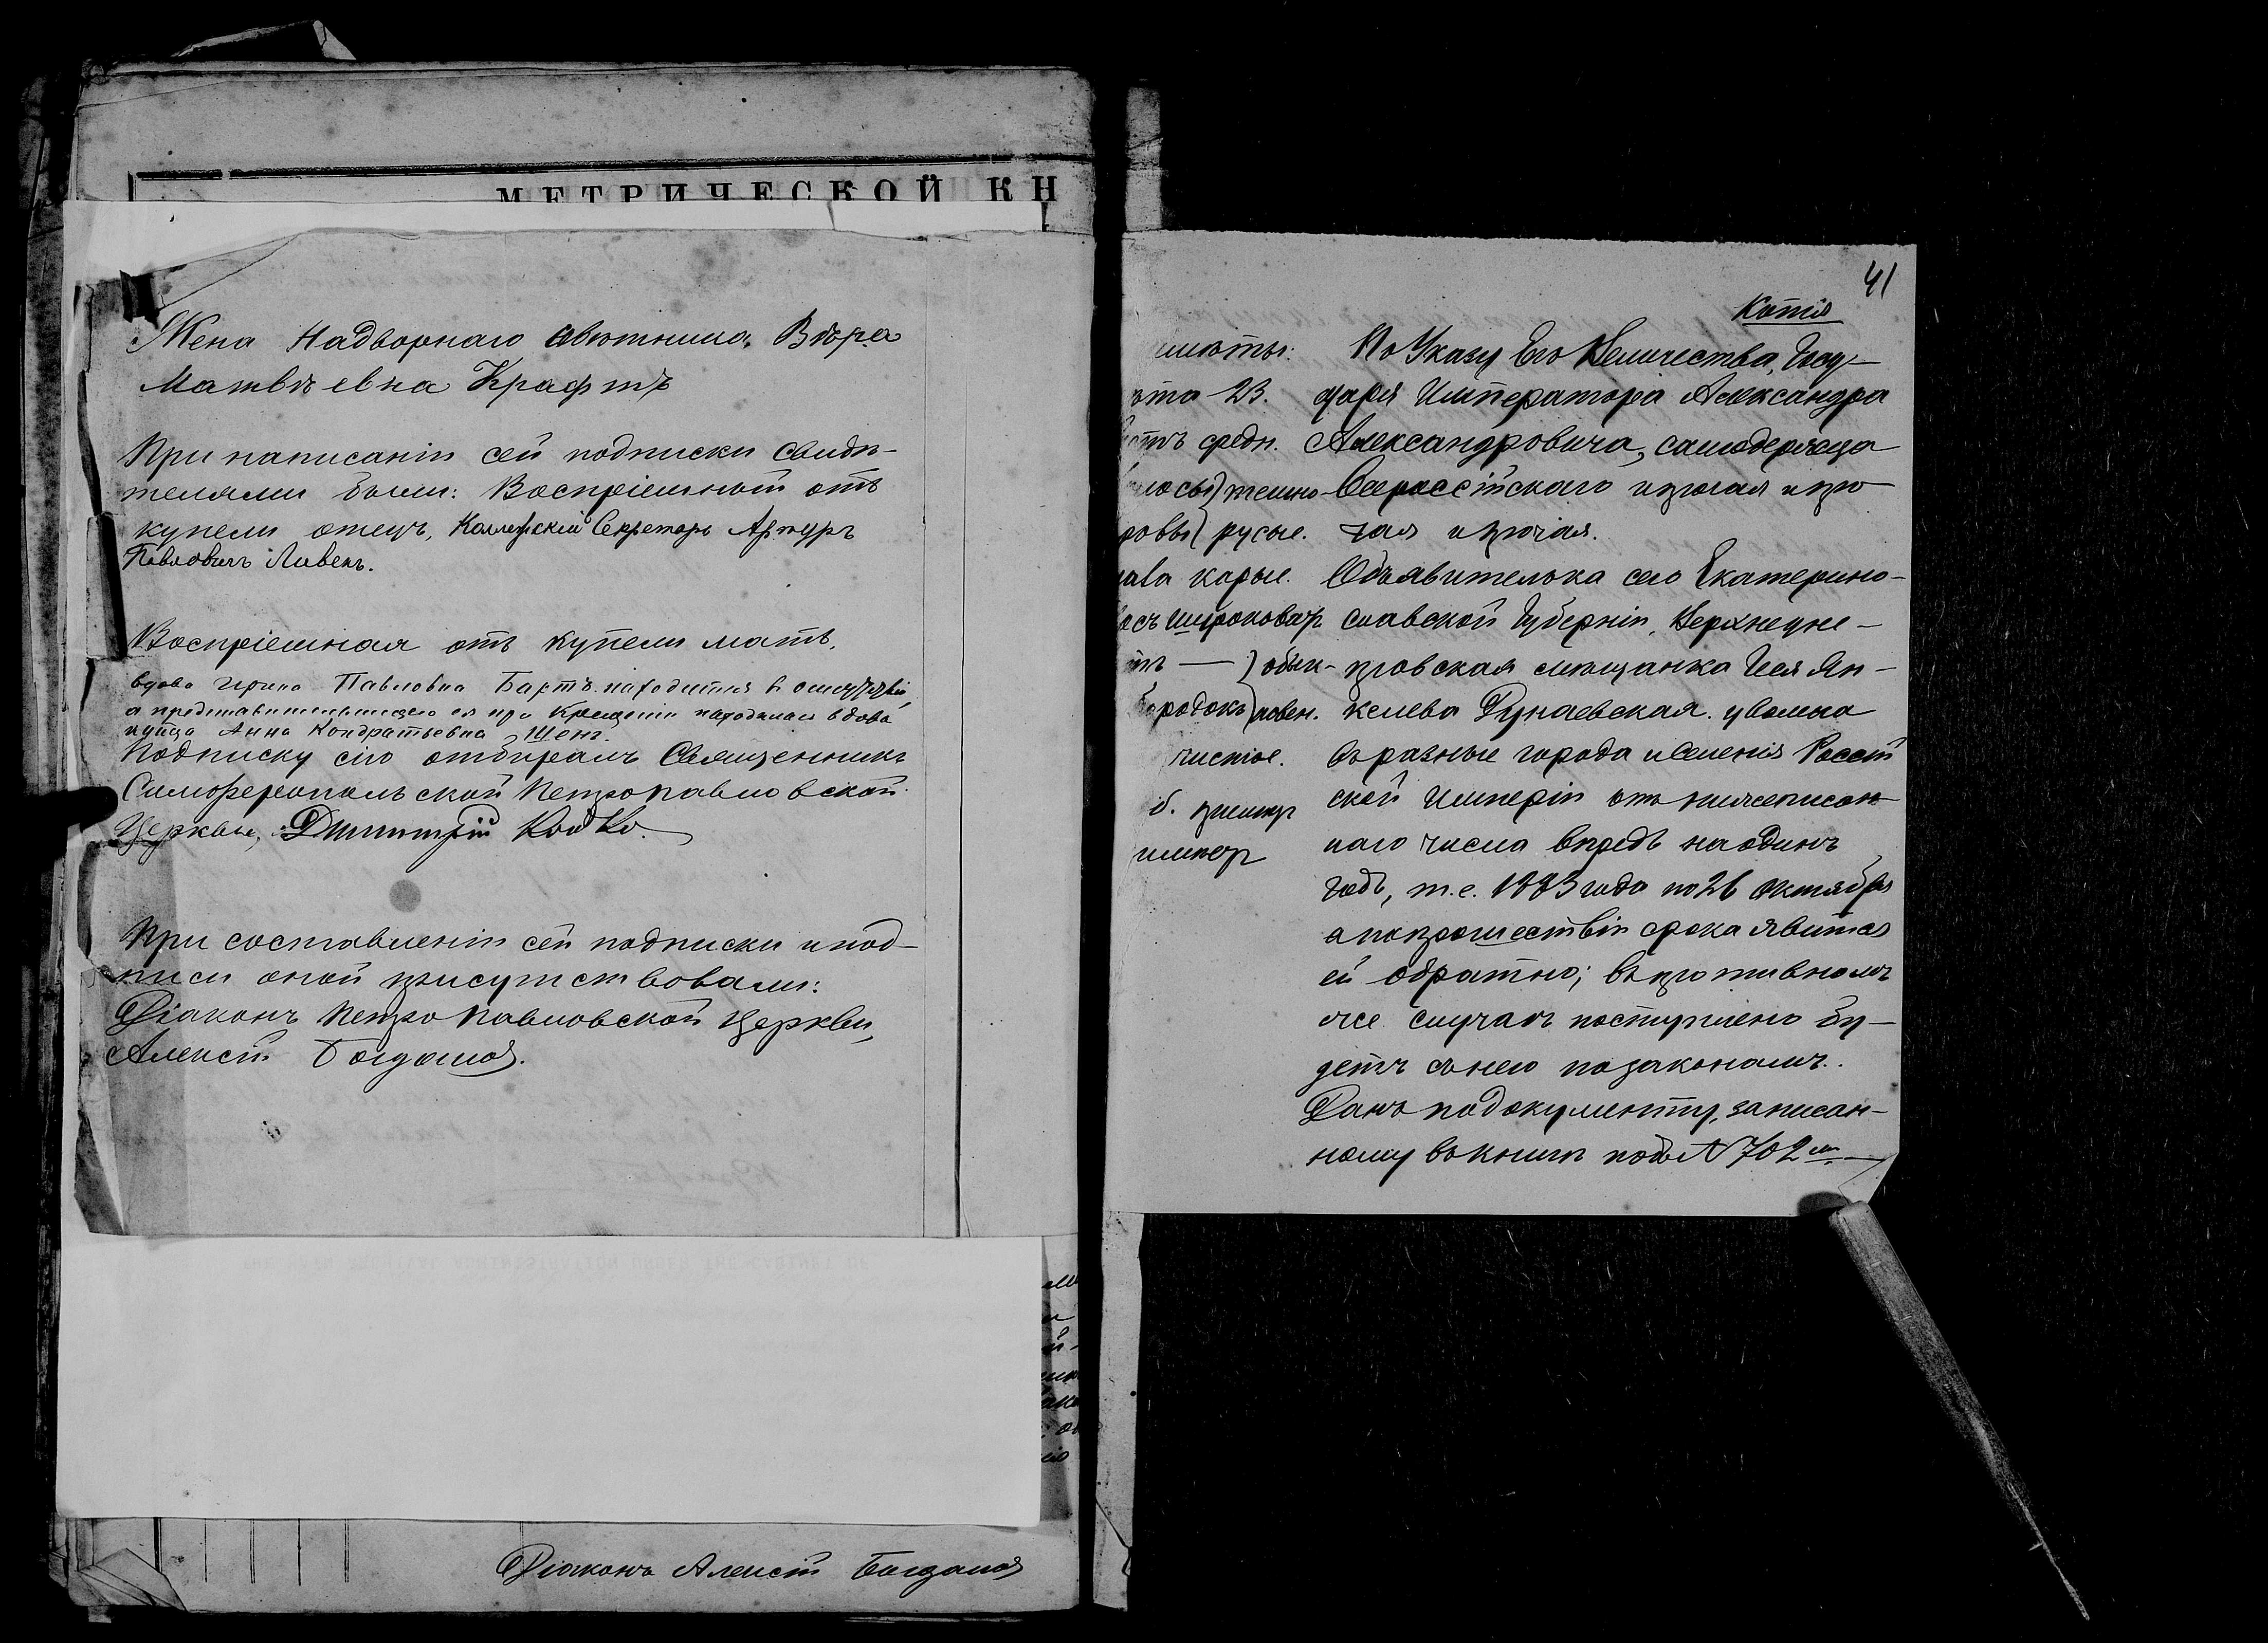 МЕТРИЧЕСКОЙ КН
Жена Надворнаго Совѣтника, Вѣра
Матвѣевна Крафтъ
При написаніи сей подписки свидѣ-
телями были: Воспріемный отъ
купели отецъ, Коллежскій Секретарь Артуръ
Павловичъ Ливенъ.
Воспріемная отъ купели мать,
вдова Ирина Павловна Бартъ находится в отсутствіи,
а представительницею ея при Крещеніи находилась вдова
купца Анна Кондратьевна
Подписку сію отбиралъ Священникъ
Симферопольской Петропавловской
Церкви, Димитрій Койко.
При составленіи сей подписки и под-
писи оной присутствовали:
Діаконъ Петропавловской Церкви,
Алексій
Діаконъ Алексій
41
Копія
имѣты:
ѣта 23.
стъ средн.
лосы} темно
ровы} русые.
лаза карые.
осъ широковат
тъ — } обык-
бородокъ} новен.
чистое.
По Указу Его Величества, Госу-
даря Императора Александра
Александровича, самодержца
Всероссійскаго и прочая и про-
чая и прочая.
Объявителька сего Екатерино-
славской Губерніи, Верхнедне-
провская мѣщанка Ян-
келева Дунаевская уволена
въ разные города и селенія Россій
ской Имперіи отъ нижеписан-
наго числа впредь на одинъ
годъ, т.е. 1883 года по 26 Октября
а по прошествіи срока явиться
ей обратно; въ противномъ
же случаѣ поступлено бу-
детъ съ нею по законамъ.
Данъ по документу, записан-
ному в книгѣ подъ № 702мъ